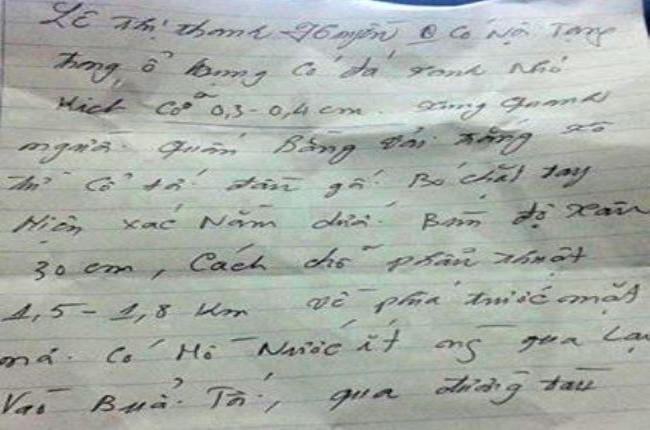 Lê Thị thanh Huyền có Nội Tạng
trong ổ bụng có đá xanh nhỏ
Kích cỡ 0,3 - 0,4 cm. xung quanh
người quấn Bằng vải trắng xô
thi cổ tay
Hiện xác Nằm dưới Bùn độ sâu
30 cm, Cách chỗ phẫu thuật
1,5 - 1,8 Km về phía trước mặt
mà có Hồ Nước ít ng qua Lại
Vào Buổi Tối, qua đường tàu